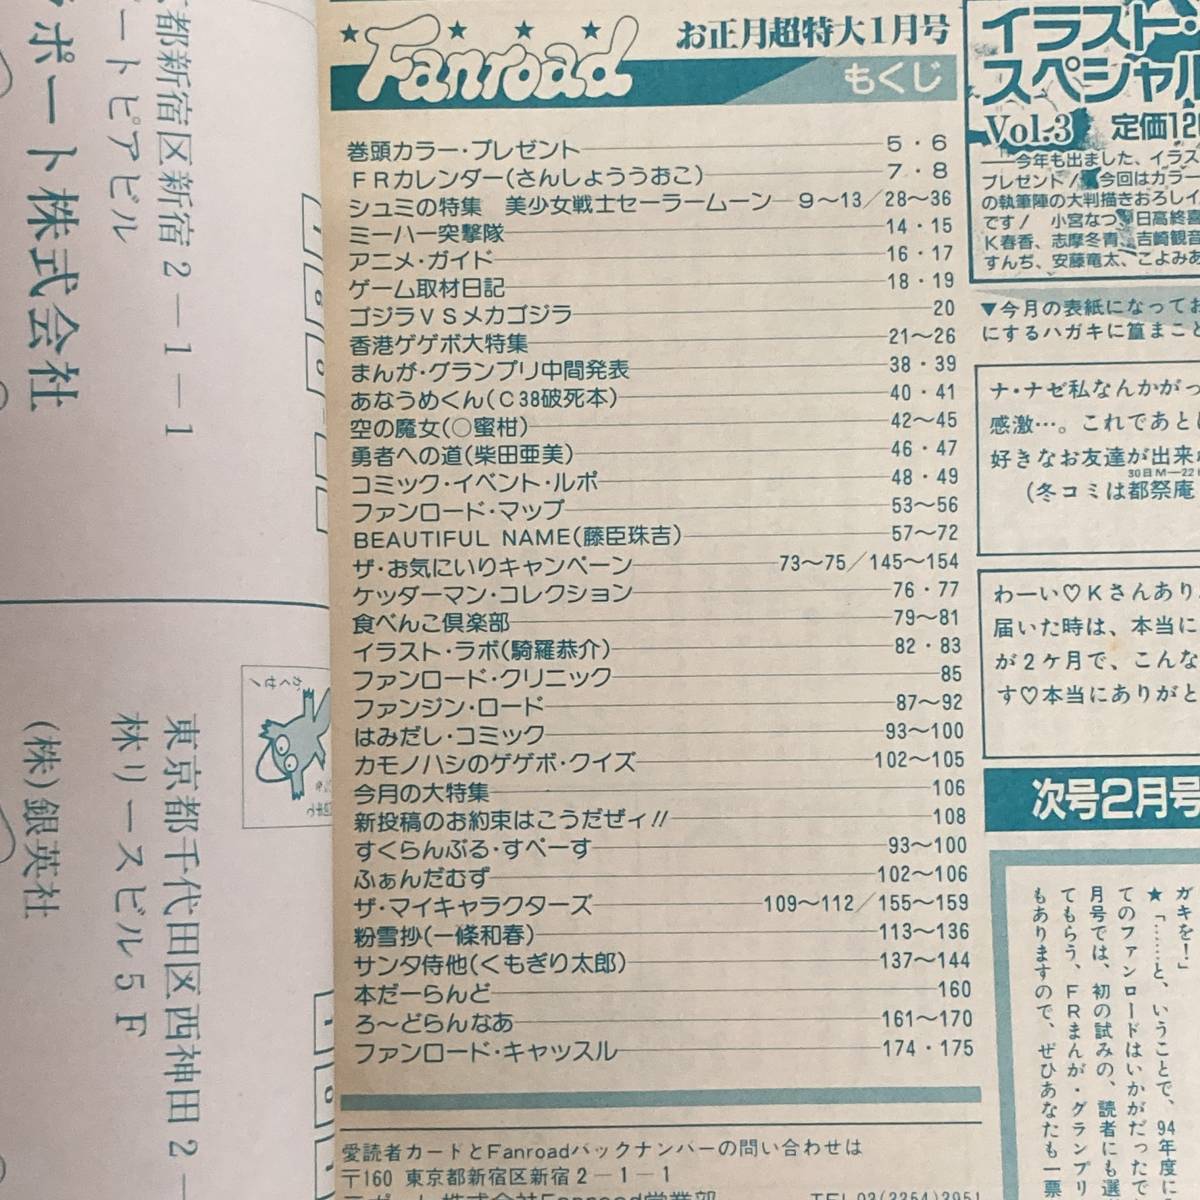 Fanroad
お正月超特大1月号
もくじ
巻頭カラー・プレゼント 5・6
FRカレンダー(さんしょううおこ) 7・8
シュミの特集 美少女戦士セーラームーン 9〜13/28〜36
ミーハー突撃隊 14・15
アニメ・ガイド 16・17
ゲーム取材日記 18・19
ゴジラVSメカゴジラ 20
香港ゲゲボ大特集 21〜26
まんが・グランプリ中間発表 38・39
あなうめくん(C38破死本) 40・41
空の魔女(○蜜柑) 42〜45
勇者への道(柴田亜美) 46・47
コミック・イベント・ルポ 48・49
ファンロード・マップ 53〜56
BEAUTIFUL NAME(藤臣珠吉) 57〜72
ザ・お気にいりキャンペーン 73〜75/145〜154
ケッダーマン・コレクション 76・77
食べんこ倶楽部 79〜81
イラスト・ラボ(騎羅恭介) 82・83
ファンロード・クリニック 85
ファンジン・ロード 87〜92
はみだし・コミック 93〜100
カモノハシのゲゲボ・クイズ 102〜105
今月の大特集 106
新投稿のお約束はこうだぜィ!! 108
すくらんぶる・すぺーす 93〜100
ふぁんだむず 102〜106
ザ・マイキャラクターズ 109〜112/155〜159
粉雪抄(一條和春) 113〜136
サンタ侍他(くもぎり太郎) 137〜144
本だーらんど 160
ろ〜どらんなあ 161〜170
ファンロード・キャッスル 174・175
愛読者カードとFanroadバックナンバーの問い合わせは
〒160 東京都新宿区新宿2−1−1
都新宿区新宿2−1−1
ートピアビル
ポート株式会社
かくせ!
東京都千代田区西神田2−
林リースビル5F
(株)銀英社
イラスト・
スペシャル
Vol.3 定価12
――今年も出ました、イラス
プレゼント/ 今回はカラー
の執筆陣の大判描きおろしイ
です! 小宮なつ 日高終喜
K春香、志摩冬青、吉崎観音
すんぢ、安藤竜太、こよみあ
▼今月の表紙になってお
にするハガキに篁まこと
ナ・ナゼ私なんかがっ
感激…。これであとは
好きなお友達が出来
30日M―22
(冬コミは都祭庵
わーい♡Kさんあり
届いた時は、本当に
が2ケ月で、こんな
す♡本当にありがと
次号2月号
ガキを!」
★「……と、いうことで、94年度に
てのファンロードはいかがだったで
月号では、初の試みの、読者にも選
てもらう、FRまんが・グランプリ
もありますので、ぜひあなたも一票